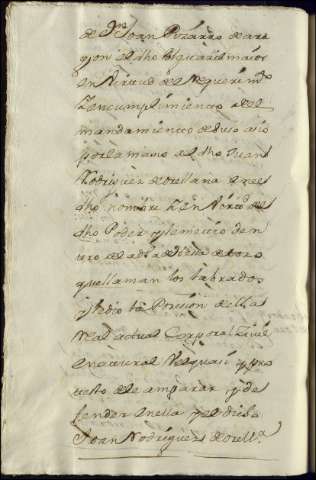 de Dn Joan Pizarro de ara
gon el dho Alguacil maior
en Virtud del Requerimto
Y en cumplimiento del
mandamiento de suso asio
por la mano al dho Juan
Rodriguez de orellana en el
dho nombre Y en Virtud del
dho Poder y le metio den
tro de la dha de esa de toro
que llaman los labrados
y le dio la Posesion della
Real actual Corporal Zivil
e natural Vel quasi y pro
testo de le amparar y de
fender en ella y el dicho
Joan Rodriguez de orella